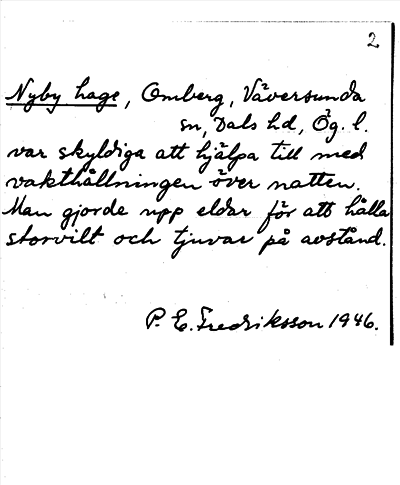 2
Nyby hage, Omberg, Väversunda
sn, Dals hd, Ög. l.
var skyldiga att hjälpa till med
vakthållningen över natten.
Man gjorde upp eldar för att hålla
storvilt och tjuvar på avstånd.
P. E. Fredriksson 1946.